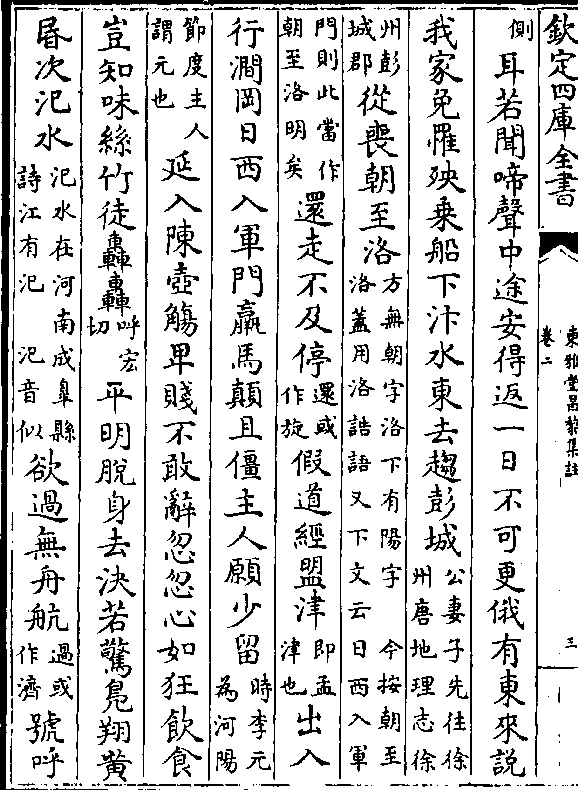 欽定四庫全書
東雅堂昌黎集註
卷二
三
側耳若聞啼聲中途安得返一日不可更俄有東來說
我家免罹殃乗船下汴水東去趨彭城公妻子先往徐州唐地理志徐
州彭城郡從喪朝至洛方無朝字洛下有陽字 今按朝至洛蓋用洛誥語又下文云日西入軍
門則此當作朝至洛明矣還走不及停還或作旋假道經盟津即孟津也出入
行澗岡日西入軍門羸馬顛且僵主人願少留時李元為河陽
節度主人謂元也延入陳壺觴卑賤不敢辭忽忽心如狂飲食
豈知味絲竹徒轟轟呼宏切平明脫身去決若驚鳧翔黄
昬次汜水汜水在河南成臯縣詩江有汜 汜音似欲過無舟航過或作濟號呼